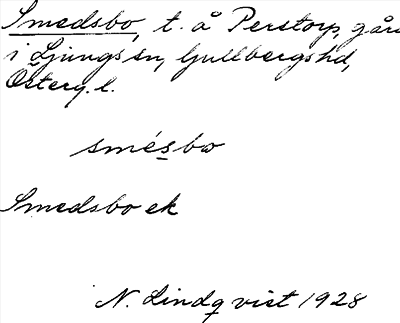 Smedsbo, t. å Perstorp, gård
i Ljungs sn, Gullbergs hd,
Österg. l.
smésbω
Smedsbo ek
N. Lindqvist 1928